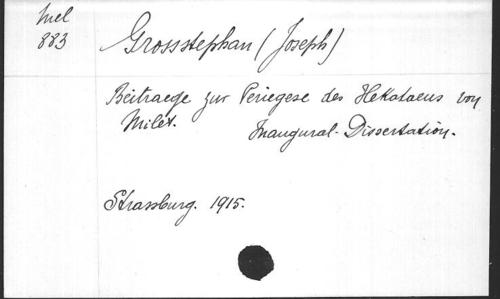 Mel
883
Grossstephan (Joseph)
Beitraege zur Periegese des Hekataeus von
Milet. Inaugural-Dissertation.
Strassburg. 1915.